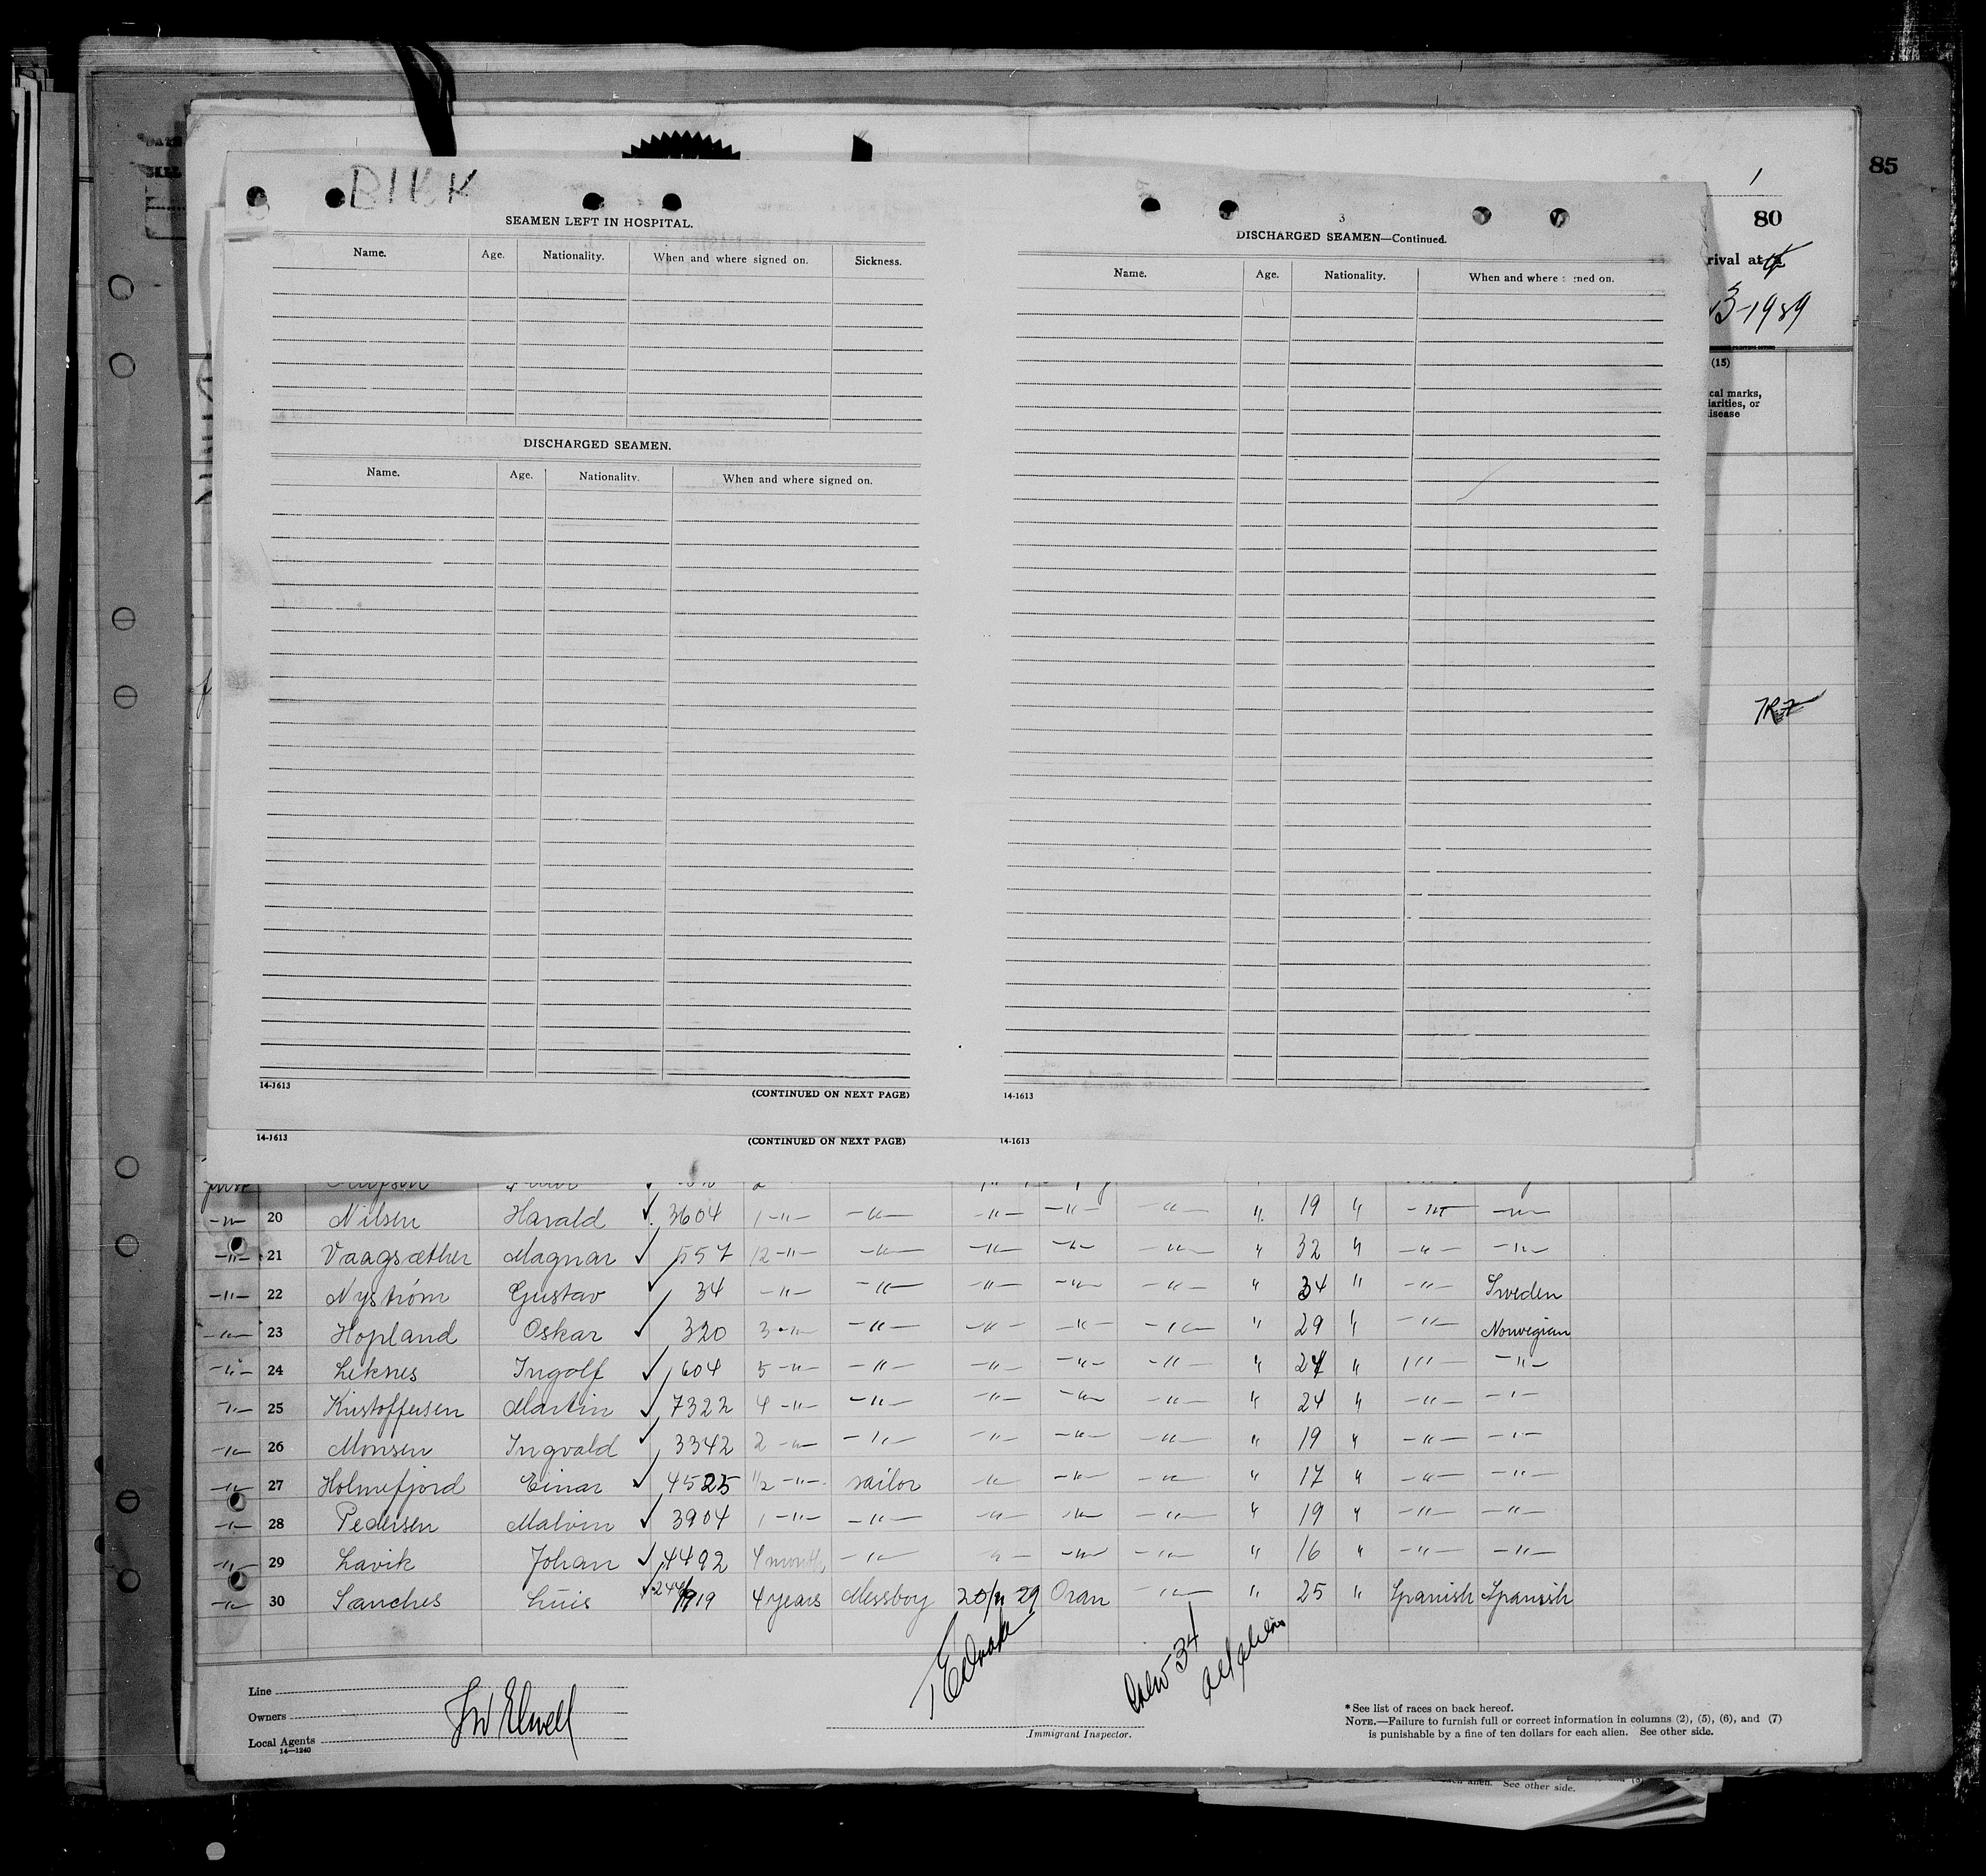 85
BIKK
SEAMEN LEFT IN HOSPITAL.
Name. Age. Nationality. When and where signed on. Sickness.
DISCHARGED SEAMEN.
Name. Age. Nationality. When and where signed on.
14-1613
(CONTINUED ON NEXT PAGE)
14-1613
(CONTINUED ON NEXT PAGE)
3
DISCHARGED SEAMEN—Continued.
Name. Age. Nationality. When and where ned on.
14-1613
14-1613
1
80
rival at
(15)
cal marks,
larities, or
isease
20 Nilsen Harald ✓ 3604 1 -"- -"- -"- -"- -"- " 19 " -"- -"-
-"- 21 Vaagsæther Magnar ✓ 557 12 -"- -"- -"- -"- -"- " 32 " -"- -"-
-"- 22 Nystrøm Gustav ✓ 34 -"- -"- -"- -"- -"- " 34 " -"- Sweden
-"- 23 Hopland Oskar ✓ 320 3 -"- -"- -"- -"- -"- " 29 " -"- Norwegian
-"- 24 Leknes Ingolf ✓ 604 5 -"- -"- -"- -"- -"- " 24 " -"- -"-
-"- 25 Kristoffersen Martin ✓ 7322 4 -"- -"- -"- -"- -"- " 24 " -"- -"-
-"- 26 Monsen Ingvald ✓ 3342 2 -"- -"- -"- -"- -"- " 19 " -"- -"-
-"- 27 Holmefjord Einar ✓ 4525 1/2 -"- sailor -"- -"- -"- " 17 " -"- -"-
-"- 28 Pedersen Malvin ✓ 3904 1 -"- -"- -"- -"- -"- " 19 " -"- -"-
-"- 29 Lavik Johan ✓ 4492 4 month, -"- -"- -"- -"- " 16 " -"- -"-
-"- 30 Sanches Luis ✓ 4 years Messboy 29 Oran -"- " 25 " Spanish Spanish
Crew 34
all aliens
Line
Owners
Local Agents
14—1240
Immigrant Inspector.
*See list of races on back hereof.
NOTE.—Failure to furnish full or correct information in columns (2), (5), (6), and (7)
is punishable by a fine of ten dollars for each alien. See other side.
alien. See other side.